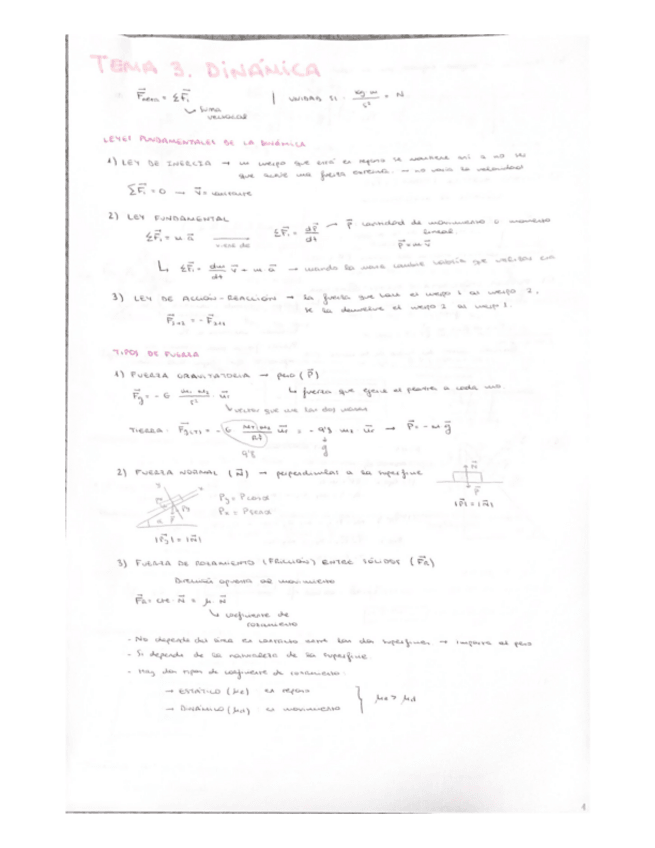 TEMA 3. DINÁMICA
F⃗neta = ΣF⃗i | UNIDAD SI: kg·m/s² = N
↳ suma vectorial
LEYES FUNDAMENTALES DE LA DINÁMICA
1) LEY DE INERCIA → un cuerpo que está en reposo se mantiene así a no ser
que actúe una fuerza externa. → no varía la velocidad
ΣF⃗i = 0 → v⃗ = constante
2) LEY FUNDAMENTAL
ΣF⃗i = m a⃗ → viene de ΣF⃗i = dp⃗/dt → p⃗ cantidad de movimiento o momento
lineal.
p⃗ = m·v⃗
↳ ΣF⃗i = dm/dt v⃗ + m a⃗ → cuando la masa cambia
3) LEY DE ACCIÓN-REACCIÓN → la fuerza que hace el cuerpo 1 al cuerpo 2,
se la devuelve el cuerpo 2 al cuerpo 1.
F⃗1→2 = - F⃗2→1
TIPOS DE FUERZA
1) FUERZA GRAVITATORIA → peso (P⃗)
↳ fuerza que ejerce el planeta a cada uno
F⃗g = - G m1 m2/r² · u⃗r
↳ vector que une las dos masas
TIERRA: F⃗g(T) = - G MT m2/RT² u⃗r = - 9'8 m2 u⃗r → P⃗ = - m g⃗
9'8 g
2) FUERZA NORMAL (N⃗) → perpendicular a la superficie
N⃗
P⃗
|P⃗| = |N⃗|
Py = P cosα
Px = P senα
|P⃗y| = |N⃗|
3) FUERZA DE ROZAMIENTO (FRICCIÓN) ENTRE SÓLIDOS (F⃗R)
Dirección opuesta al movimiento
F⃗R = cte · N⃗ = μ · N⃗
↳ coeficiente de
rozamiento
- No depende del área en contacto entre las dos superficies → importa el peso
- Si depende de la naturaleza de la superficie.
- Hay dos tipos de coeficiente de rozamiento:
→ ESTÁTICO (μe) en reposo
→ DINÁMICO (μd) en movimiento } μe > μd
4